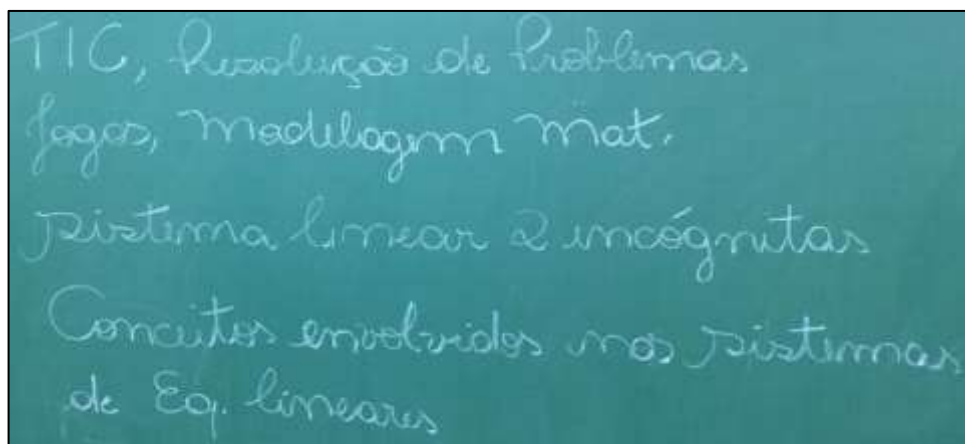 TIC, Resolução de Problemas
Jogos, Modelagem Mat.
Sistema linear 2 incógnitas
Conceitos envolvidos nos sistemas
de Eq. lineares